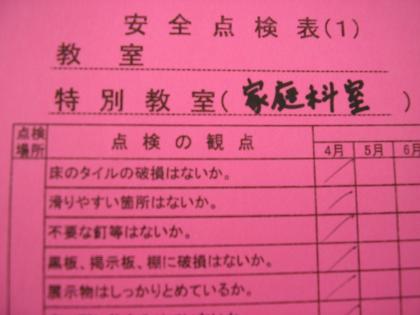 安全点検表(1)
教室
特別教室(家庭科室)
点検場所 点検の観点 4月 5月 6月
床のタイルの破損はないか。
滑りやすい箇所はないか。
不要な釘等はないか。
黒板、掲示板、棚に破損はないか。
展示物はしっかりとめているか。